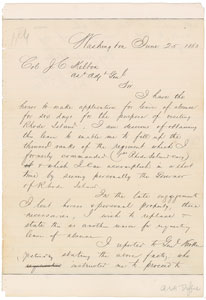 Washington June 25 1863
Col. J. C. Kelton
Asst Adjt Genl
Sir
I have the
honor to make application for leave of absence
for ten days for the purpose of visiting
Rhode Island. I am desirous of obtaining
the leave to enable me to fill up the
thinned ranks of the regiment which I
formerly commanded (1st Rhode Island Cavy)
& which I can accomplish in a short
time by seeing personally the Governor
of Rhode Island
In the late engagements
I lost horses & personal property, these
necessaries, I wish to replace &
state this as another reason for requesting
leave of absence.
I reported to Genl
yesterday stating the above facts, who
instructed me to proceed to